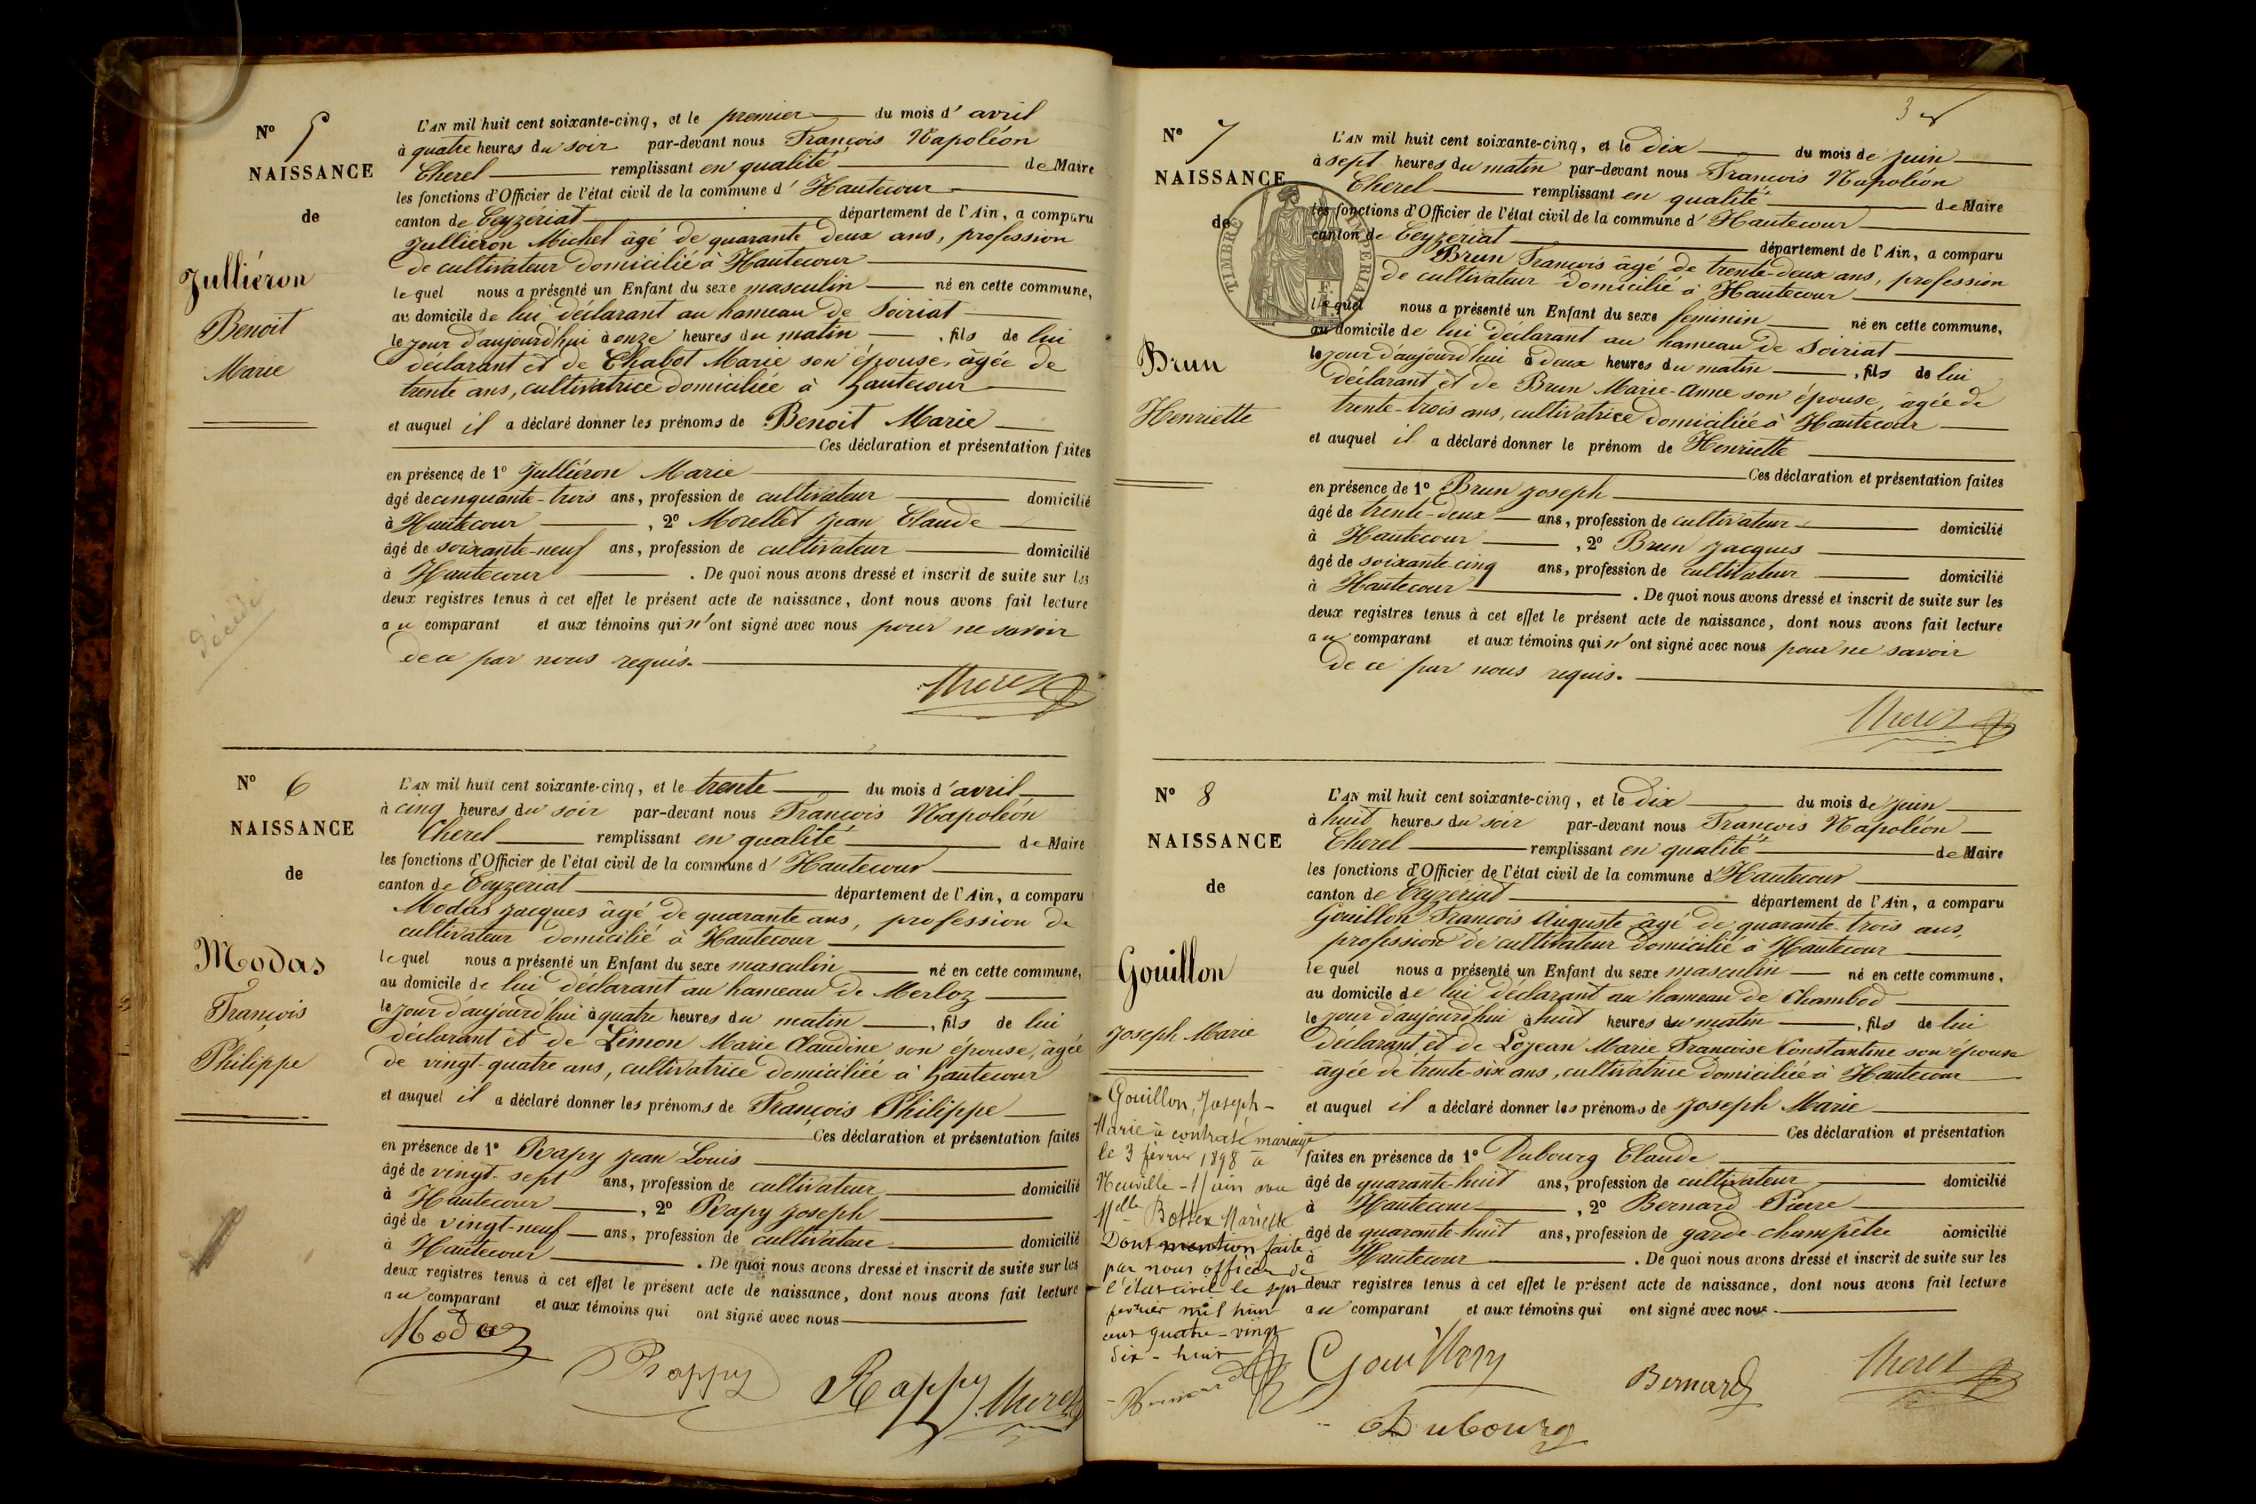 N° 5
NAISSANCE
de
Julliéron
Benoit
Marie
décédé
L'AN mil huit cent soixante-cinq, et le premier du mois d'avril
à quatre heures du soir par-devant nous François Napoléon
Cherel remplissant en qualité de Maire
les fonctions d'Officier de l'état civil de la commune d'Hautecour
canton de Ceyzériat département de l'Ain, a comparu
Julliéron Michel âgé de quarante deux ans, profession
de cultivateur domicilié à Hautecour
lequel nous a présenté un Enfant du sexe masculin né en cette commune,
au domicile de lui déclarant au hameau de Soiriat
le jour d'aujourd'hui à onze heures du matin, fils de lui
déclarant et de Chabot Marie son épouse, âgée de
trente ans, cultivatrice domiciliée à hautecour
et auquel il a déclaré donner les prénoms de Benoit Marie
Ces déclaration et présentation faites
en présence de 1° Julliéron Marie
âgé de cinquante-trois ans, profession de cultivateur domicilié
à Hautecour, 2° Morellet Jean Claude
âgé de soixante-neuf ans, profession de cultivateur domicilié
à Hautecour. De quoi nous avons dressé et inscrit de suite sur les
deux registres tenus à cet effet le présent acte de naissance, dont nous avons fait lecture
au comparant et aux témoins qui n'ont signé avec nous pour ne savoir
de ce par nous requis.
Cherel
N° 6
NAISSANCE
de
Modas
François
Philippe
L'AN mil huit cent soixante-cinq, et le trente du mois d'avril
à cinq heures du soir par-devant nous François Napoléon
Cherel remplissant en qualité de Maire
les fonctions d'Officier de l'état civil de la commune d'Hautecour
canton de Ceyzériat département de l'Ain, a comparu
Modas Jacques âgé de quarante ans, profession de
cultivateur domicilié à Hautecour
lequel nous a présenté un Enfant du sexe masculin né en cette commune,
au domicile de lui déclarant au hameau de Merloz
le jour d'aujourd'hui à quatre heures du matin, fils de lui
déclarant et de Limon Marie Claudine son épouse, âgée
de vingt-quatre ans, cultivatrice domiciliée à hautecour
et auquel il a déclaré donner les prénoms de François Philippe
Ces déclaration et présentation faites
en présence de 1° Rapy Jean Louis
âgé de vingt-sept ans, profession de cultivateur domicilié
à Hautecour, 2° Rapy Joseph
âgé de vingt-neuf ans, profession de cultivateur domicilié
à Hautecour. De quoi nous avons dressé et inscrit de suite sur les
deux registres tenus à cet effet le présent acte de naissance, dont nous avons fait lecture
au comparant et aux témoins qui ont signé avec nous
Modas
Rappy Rappy Cherel
3
N° 7
NAISSANCE
de
TIMBRE IMPERIAL
Brun
Henriette
L'AN mil huit cent soixante-cinq, et le dix du mois de juin
à sept heures du matin par-devant nous François Napoléon
Cherel remplissant en qualité de Maire
les fonctions d'Officier de l'état civil de la commune d'Hautecour
canton de Ceyzeriat département de l'Ain, a comparu
Brun François âgé de trente-deux ans, profession
de cultivateur domicilié à Hautecour
lequel nous a présenté un Enfant du sexe feminin né en cette commune,
au domicile de lui déclarant au hameau de Soiriat
le jour d'aujourd'hui à deux heures du matin, fils de lui
déclarant et de Brun Marie-Anne son épouse, âgée de
trente-trois ans, cultivatrice domiciliée à Hautecour
et auquel il a déclaré donner le prénom de Henriette
Ces déclaration et présentation faites
en présence de 1° Brun Joseph
âgé de trente-deux ans, profession de cultivateur domicilié
à Hautecour, 2° Brun Jacques
âgé de soixante-cinq ans, profession de cultivateur domicilié
à Hautecour. De quoi nous avons dressé et inscrit de suite sur les
deux registres tenus à cet effet le présent acte de naissance, dont nous avons fait lecture
au comparant et aux témoins qui n'ont signé avec nous pour ne savoir
de ce par nous requis.
Cherel
N° 8
NAISSANCE
de
Gouillon
Joseph Marie
Gouillon, Joseph-
Marie a contracté mariage
le 3 février 1898 à
Neuville-s/ain avec
Melle Bottex Mariette
Dont mention faite
par nous officier de
l'état civil le sept
février mil huit
cent quatre-vingt
dix-huit
L'AN mil huit cent soixante-cinq, et le dix du mois de juin
à huit heures du soir par-devant nous François Napoléon
Cherel remplissant en qualité de Maire
les fonctions d'Officier de l'état civil de la commune d'Hautecour
canton de Ceyzériat département de l'Ain, a comparu
Gouillon François Auguste âgé de quarante-trois ans,
profession de cultivateur domicilié à Hautecour
lequel nous a présenté un Enfant du sexe masculin né en cette commune,
au domicile de lui déclarant au hameau de Chambod
le jour d'aujourd'hui à huit heures du matin, fils de lui
déclarant et de Lojean Marie Françoise Constantine son épouse
âgée de trente-six ans, cultivatrice domiciliée à Hautecour
et auquel il a déclaré donner les prénoms de Joseph Marie
Ces déclaration et présentation
faites en présence de 1° Dubourg Claude
âgé de quarante-huit ans, profession de cultivateur domicilié
à Hautecour, 2° Bernard Pierre
âgé de quarante-huit ans, profession de garde-champêtre domicilié
à Hautecour. De quoi nous avons dressé et inscrit de suite sur les
deux registres tenus à cet effet le présent acte de naissance, dont nous avons fait lecture
au comparant et aux témoins qui ont signé avec nous.
Gouillon Bernard Cherel
Dubourg